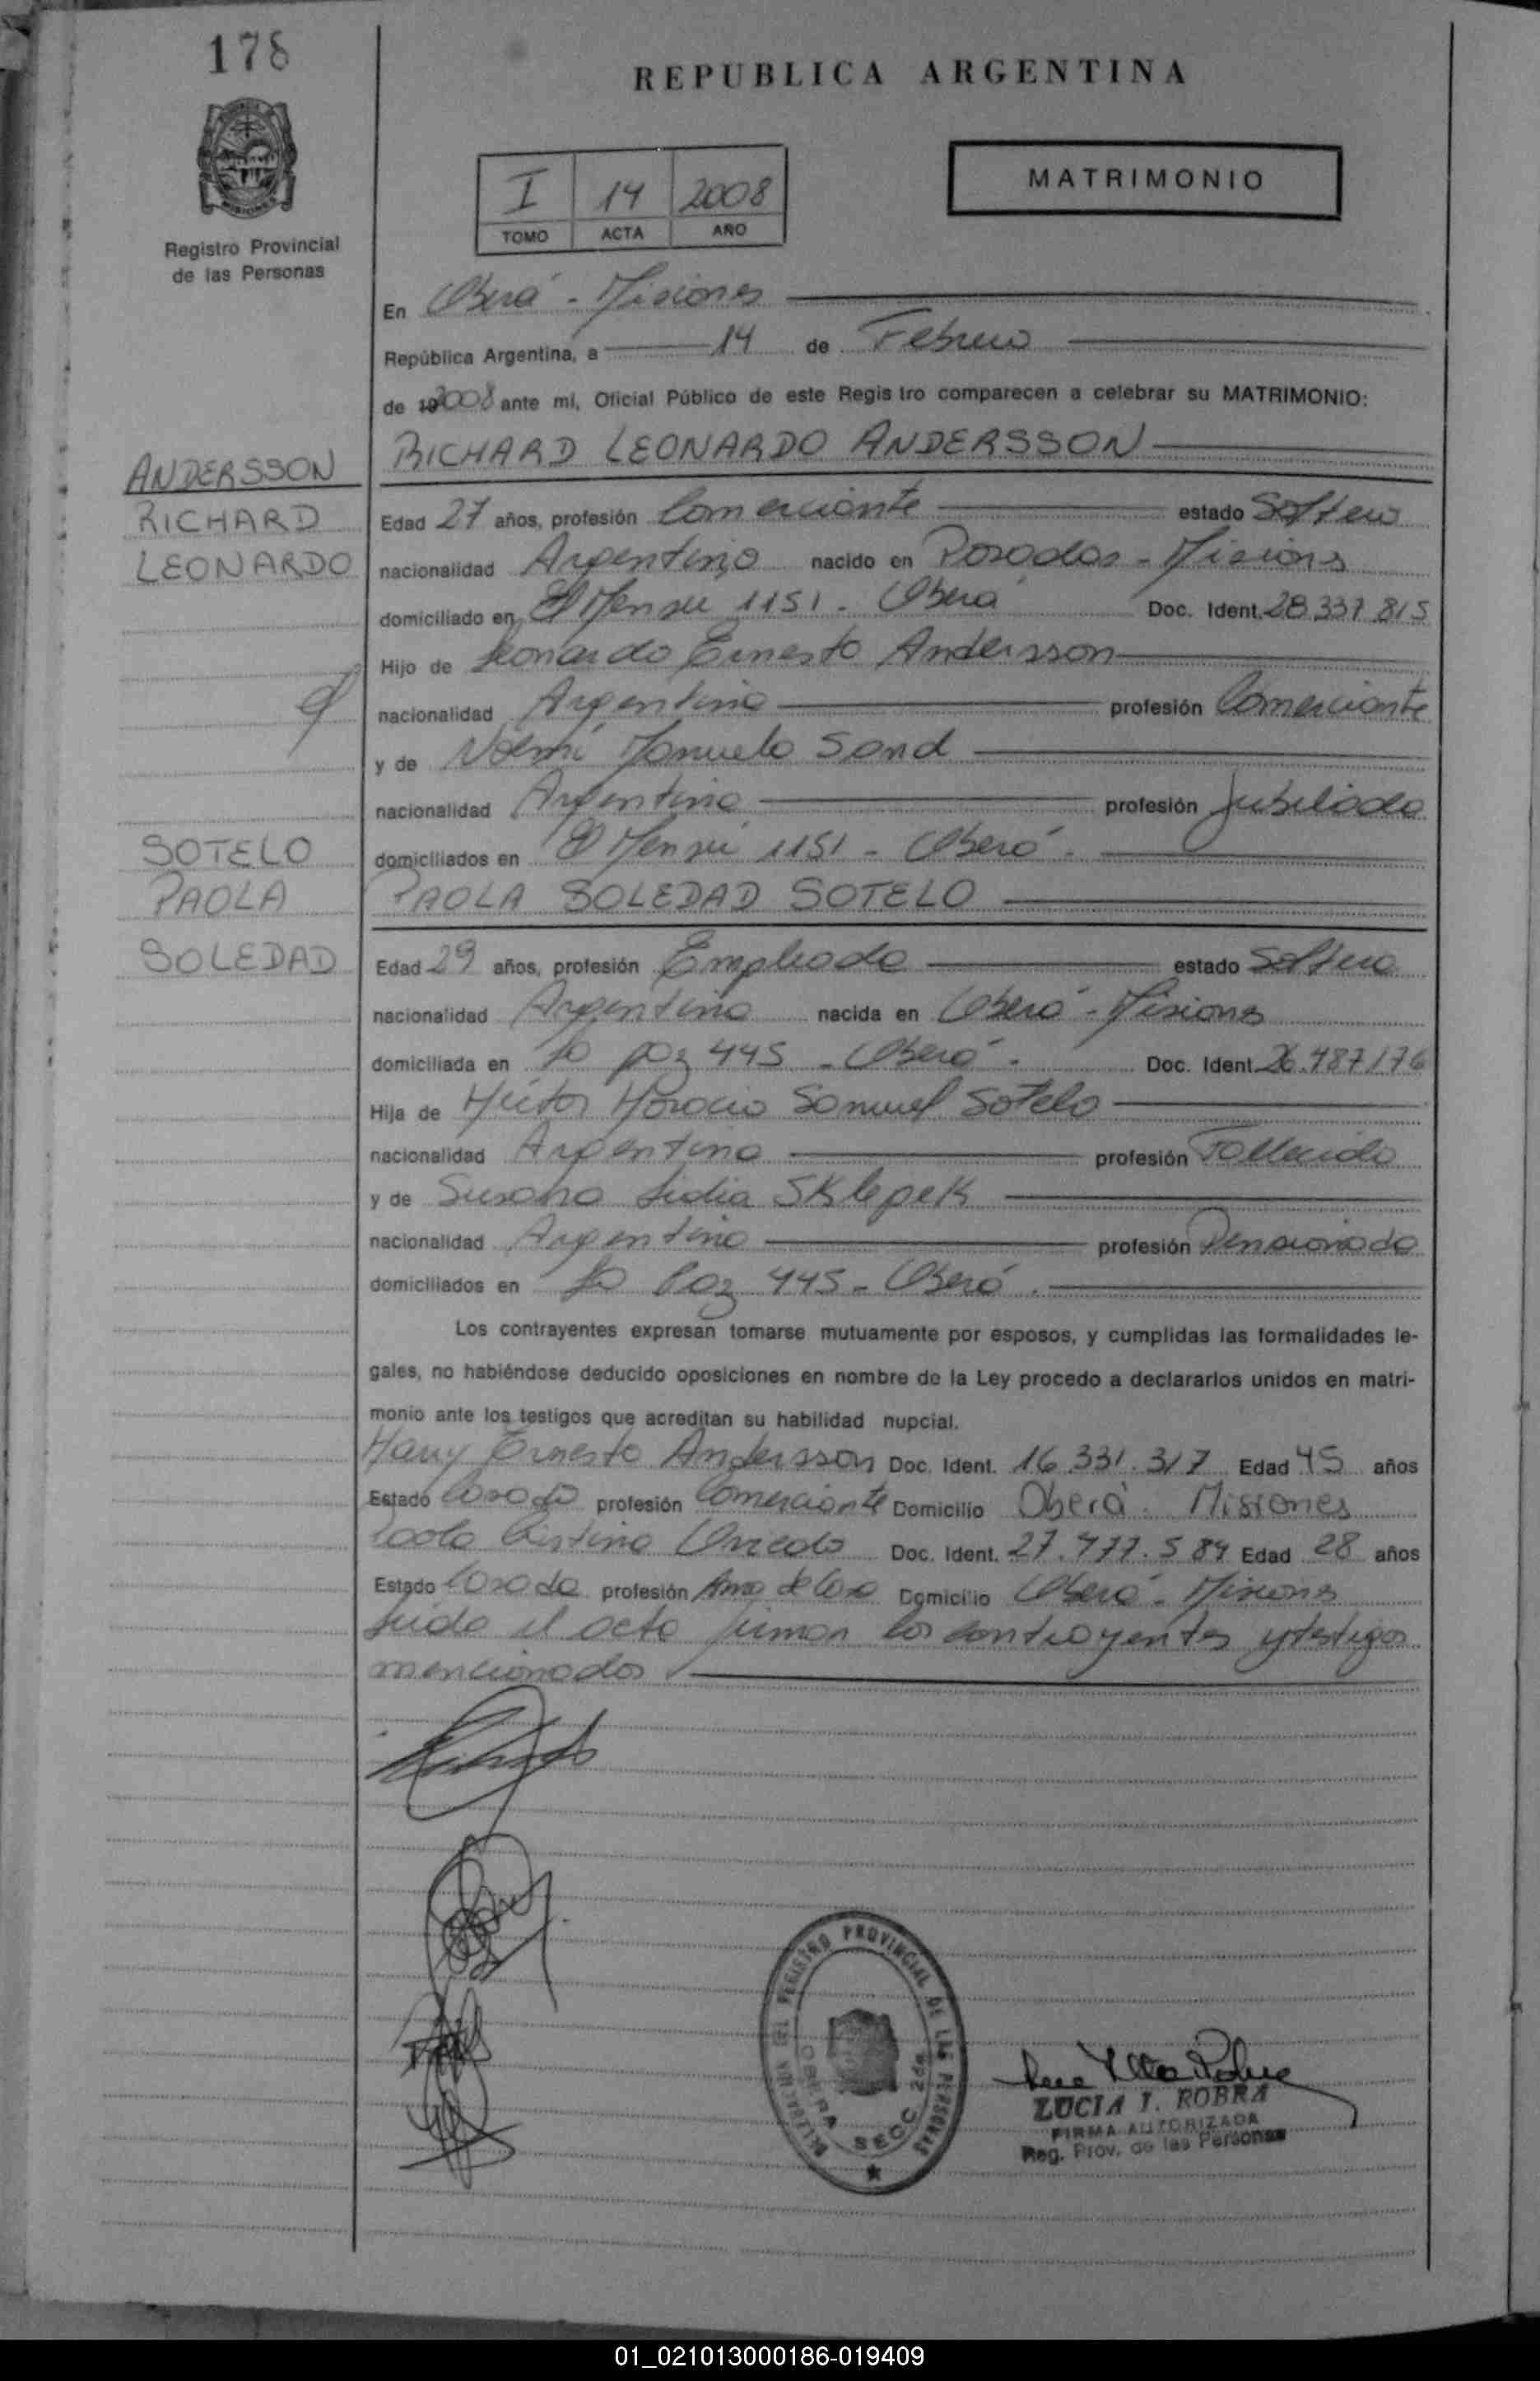 178
REPUBLICA ARGENTINA
MISIONES
Registro Provincial
de las Personas
I 14 2008
TOMO ACTA AÑO
MATRIMONIO
En Oberá - Misiones
República Argentina, a 14 de Febrero
de 2008 ante mí, Oficial Público de este Registro comparecen a celebrar su MATRIMONIO:
ANDERSSON
RICHARD
LEONARDO
RICHARD LEONARDO ANDERSSON
Edad 27 años, profesión Comerciante estado Soltero
nacionalidad Argentino nacido en Posadas - Misiones
domiciliado en El Mensu 1151 - Oberá Doc. Ident. 28.337.815
Hijo de Leonardo Ernesto Andersson
nacionalidad Argentina profesión Comerciante
y de Noemí Manuela Sand
nacionalidad Argentina profesión Jubilada
domiciliados en El Mensú 1151 - Oberá -
SOTELO
PAOLA
SOLEDAD
PAOLA SOLEDAD SOTELO
Edad 29 años, profesión Empleada estado Soltera
nacionalidad Argentina nacida en Oberá - Misiones
domiciliada en La Paz 445 - Oberá - Doc. Ident. 26.487.176
Hija de Héctor Horacio Samuel Sotelo
nacionalidad Argentina profesión Fallecido
y de Susana Lidia Sklepek
nacionalidad Argentina profesión Pensionada
domiciliados en La Paz 445 - Oberá.
Los contrayentes expresan tomarse mutuamente por esposos, y cumplidas las formalidades le-
gales, no habiéndose deducido oposiciones en nombre de la Ley procedo a declararlos unidos en matri-
monio ante los testigos que acreditan su habilidad nupcial.
Harry Ernesto Andersson Doc. Ident. 16.331.317 Edad 45 años
Estado Casado profesión Comerciante Domicilio Oberá - Misiones
Paola Cristina Oviedo Doc. Ident. 27.477.584 Edad 28 años
Estado Casada profesión Ama de Casa Domicilio Oberá - Misiones
Leída el acta firman los contrayentes y testigos
mencionados
REGISTRO PROVINCIAL DE LAS PERSONAS
OBERA SECC 2da
LUCIA I. ROBRA
FIRMA AUTORIZADA
Reg. Prov. de las Personas
01_021013000186-019409